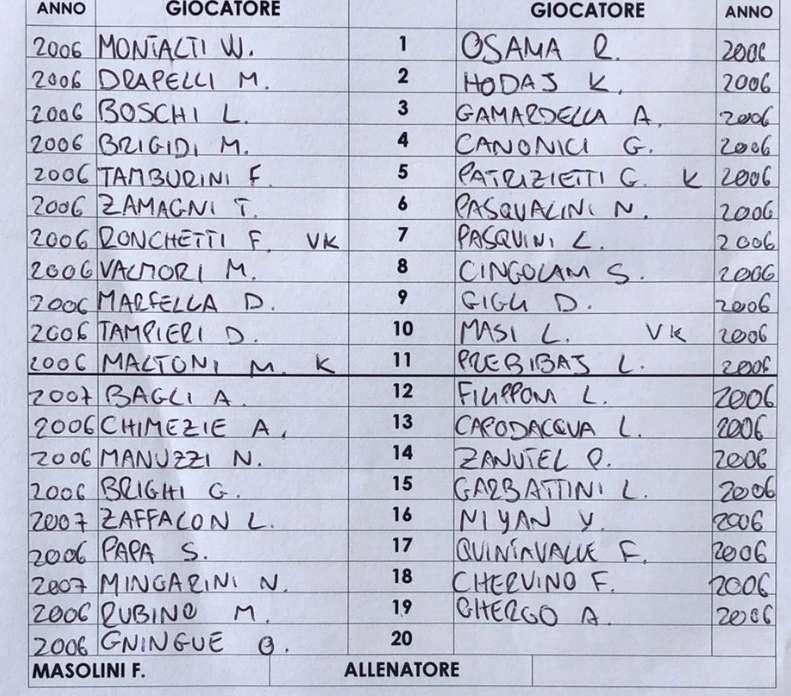 ANNO GIOCATORE GIOCATORE ANNO
2006 MONTALTI W. 1 OSAMA R. 2006
2006 DRAPELLI M. 2 HODAJ K. 2006
2006 BOSCHI L. 3 GAMARDELLA A. 2006
2006 BRIGIDI M. 4 CANONICI G. 2006
2006 TAMBURINI F. 5 PATRIZIETTI G. K 2006
2006 ZAMAGNI T. 6 PASQUALINI N. 2006
2006 RONCHETTI F. VK 7 PASQUINI L. 2006
2006 VALMORI M. 8 CINGOLANI S. 2006
2006 MARFELLA D. 9 GIGLI D. 2006
2006 TAMPIERI D. 10 MASI L. VK 2006
2006 MALTONI M. K 11 PREBIBAJ L. 2006
2007 BAGLI A. 12 FILIPPONI L. 2006
2006 CHIMEZIE A. 13 CAPODACQUA L. 2006
2006 MANUZZI N. 14 ZANUTEL P. 2006
2006 BRIGHI G. 15 GARBATTINI L. 2006
2007 ZAFFALON L. 16 NIYAN Y. 2006
2006 PAPA S. 17 QUINTAVALLE F. 2006
2007 MINGARINI N. 18 CHERVINO F. 2006
2006 RUBINO M. 19 GHERGO A. 2006
2006 GNINGUE O. 20
MASOLINI F. ALLENATORE